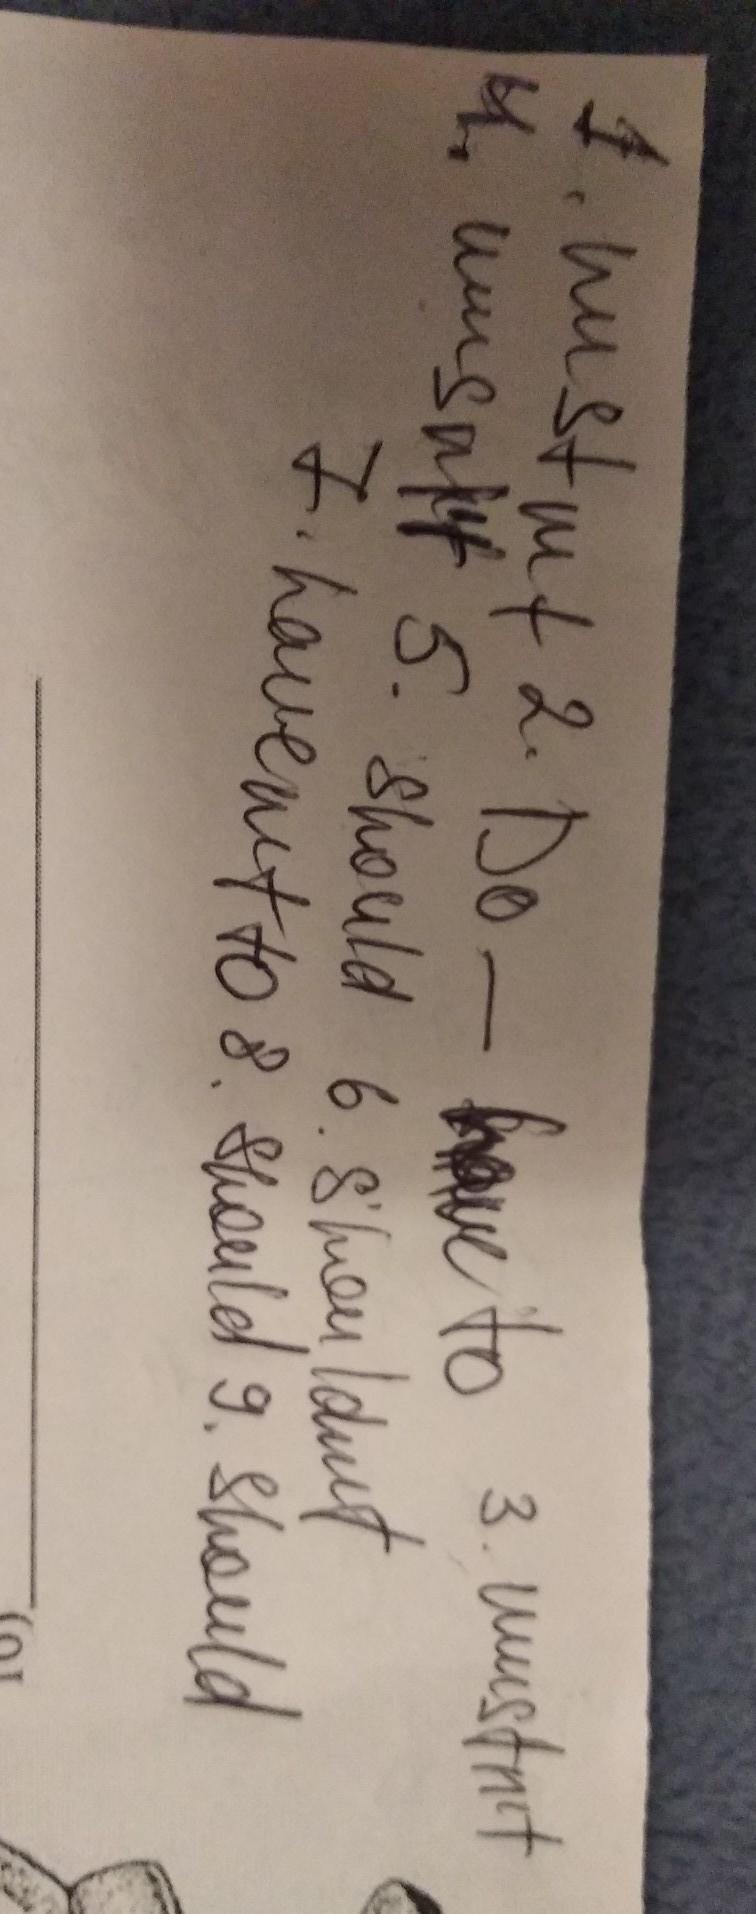 1. mustn't 2. Do — have to 3. mustn't
4. musn't 5. should 6. shouldn't
7. haven't to 8. should 9. should